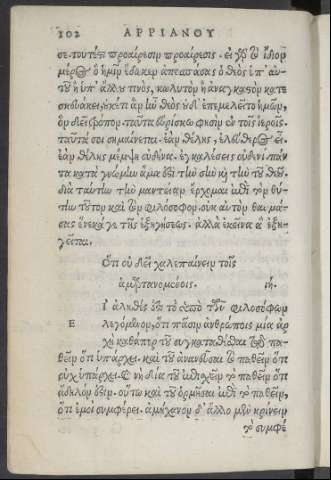 102 ΑΡΡΙΑΝΟΥ
σε. τουτέστι προαίρεσιν προαίρεσις. εἰ γὰρ τὸ ἴδιον
μέρος ὃ ἡμῖν ἔδωκεν ἀποσπάσας ὁ θεὸς ὑπ' αὐ-
τοῦ ἢ ὑπ' ἄλλου τινὸς, κωλυτὸν ἢ ἀναγκαστὸν κατε
σκευάκει, οὐκέτι ἂν ἦν θεὸς οὐδ' ἐπεμελεῖτο ἡμῶν,
ὃν δεῖ τρόπον. ταῦτα εὑρίσκω φησὶν ἐν τοῖς ἱεροῖς.
ταῦτά σοι σημαίνεται. ἐὰν θέλῃς, ἐλεύθερος εἶ.
ἐὰν θέλῃς μέμψῃ οὐδένα. ἐγκαλέσεις οὐδενὶ. πάν
τα κατὰ γνώμην ἅμα ἔσται τὴν σὴν καὶ τὴν τοῦ θεοῦ
διὰ ταύτην τὴν μαντείαν ἔρχομαι ἐπὶ τὸν θύ-
την τοῦτον καὶ τὸν φιλόσοφον. οὐκ αὐτὸν θαυμά-
σας ἕνεκά γε τῆς ἐξηγήσεως. ἀλλὰ ἐκεῖνα ἃ ἐξη-
γεῖται.
Ὅτι οὐ δεῖ χαλεπαίνειν τοῖς
ἁμαρτανομένοις. ιη.
Ι ἀληθές ἐστι τὸ ὑπὸ τῶν φιλοσόφων
Ε λεγόμενον, ὅτι πᾶσιν ἀνθρώποις μία ἀρ
χὴ καθάπερ τοῦ συγκαταθέσθαι τὸ πα
θεῖν ὅτι ὑπάρχει. καὶ τοῦ ἀνανεῦσαι τὸ παθεῖν ὅτι
οὐχ ὑπάρχει. καὶ νὴ δία τοῦ ἐπισχεῖν τὸ παθεῖν ὅτι
ἄδηλόν ἐστιν. οὕτω καὶ τοῦ ὁρμῆσαι ἐπί τι τὸ παθεῖν,
ὅτι ἐμοὶ συμφέρει. ἀμήχανον δ' ἄλλο μὲν κρίνειν
τὸ συμφέ